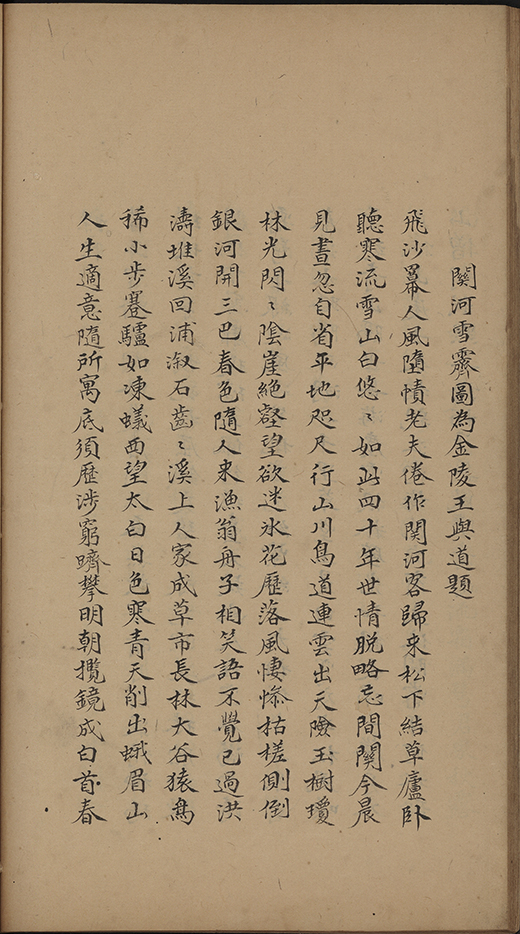 關河雪霽圖為金陵王與道題
飛沙羃人風墮幘老夫倦作関河客歸来松下結草廬卧
聽寒流雪山白悠〻如此四十年世情脱略忘間關今晨
見畫忽自省平地咫尺行山川鳥道連雲出天險玉樹瓊
林光閃〻陰崖絕壑望欲迷氷花歷落風悽慘枯槎側倒
銀河開三巴春色隨人来漁翁舟子相笑語不覺已過洪
濤堆溪回浦溆石齒〻溪上人家成草市長林大谷猿鳥
稀小步蹇驢如凍蟻西望太白日色寒青天削出蛾眉山
人生適意隨所寓底須歷涉窮躋攀明朝攬鏡成白首春